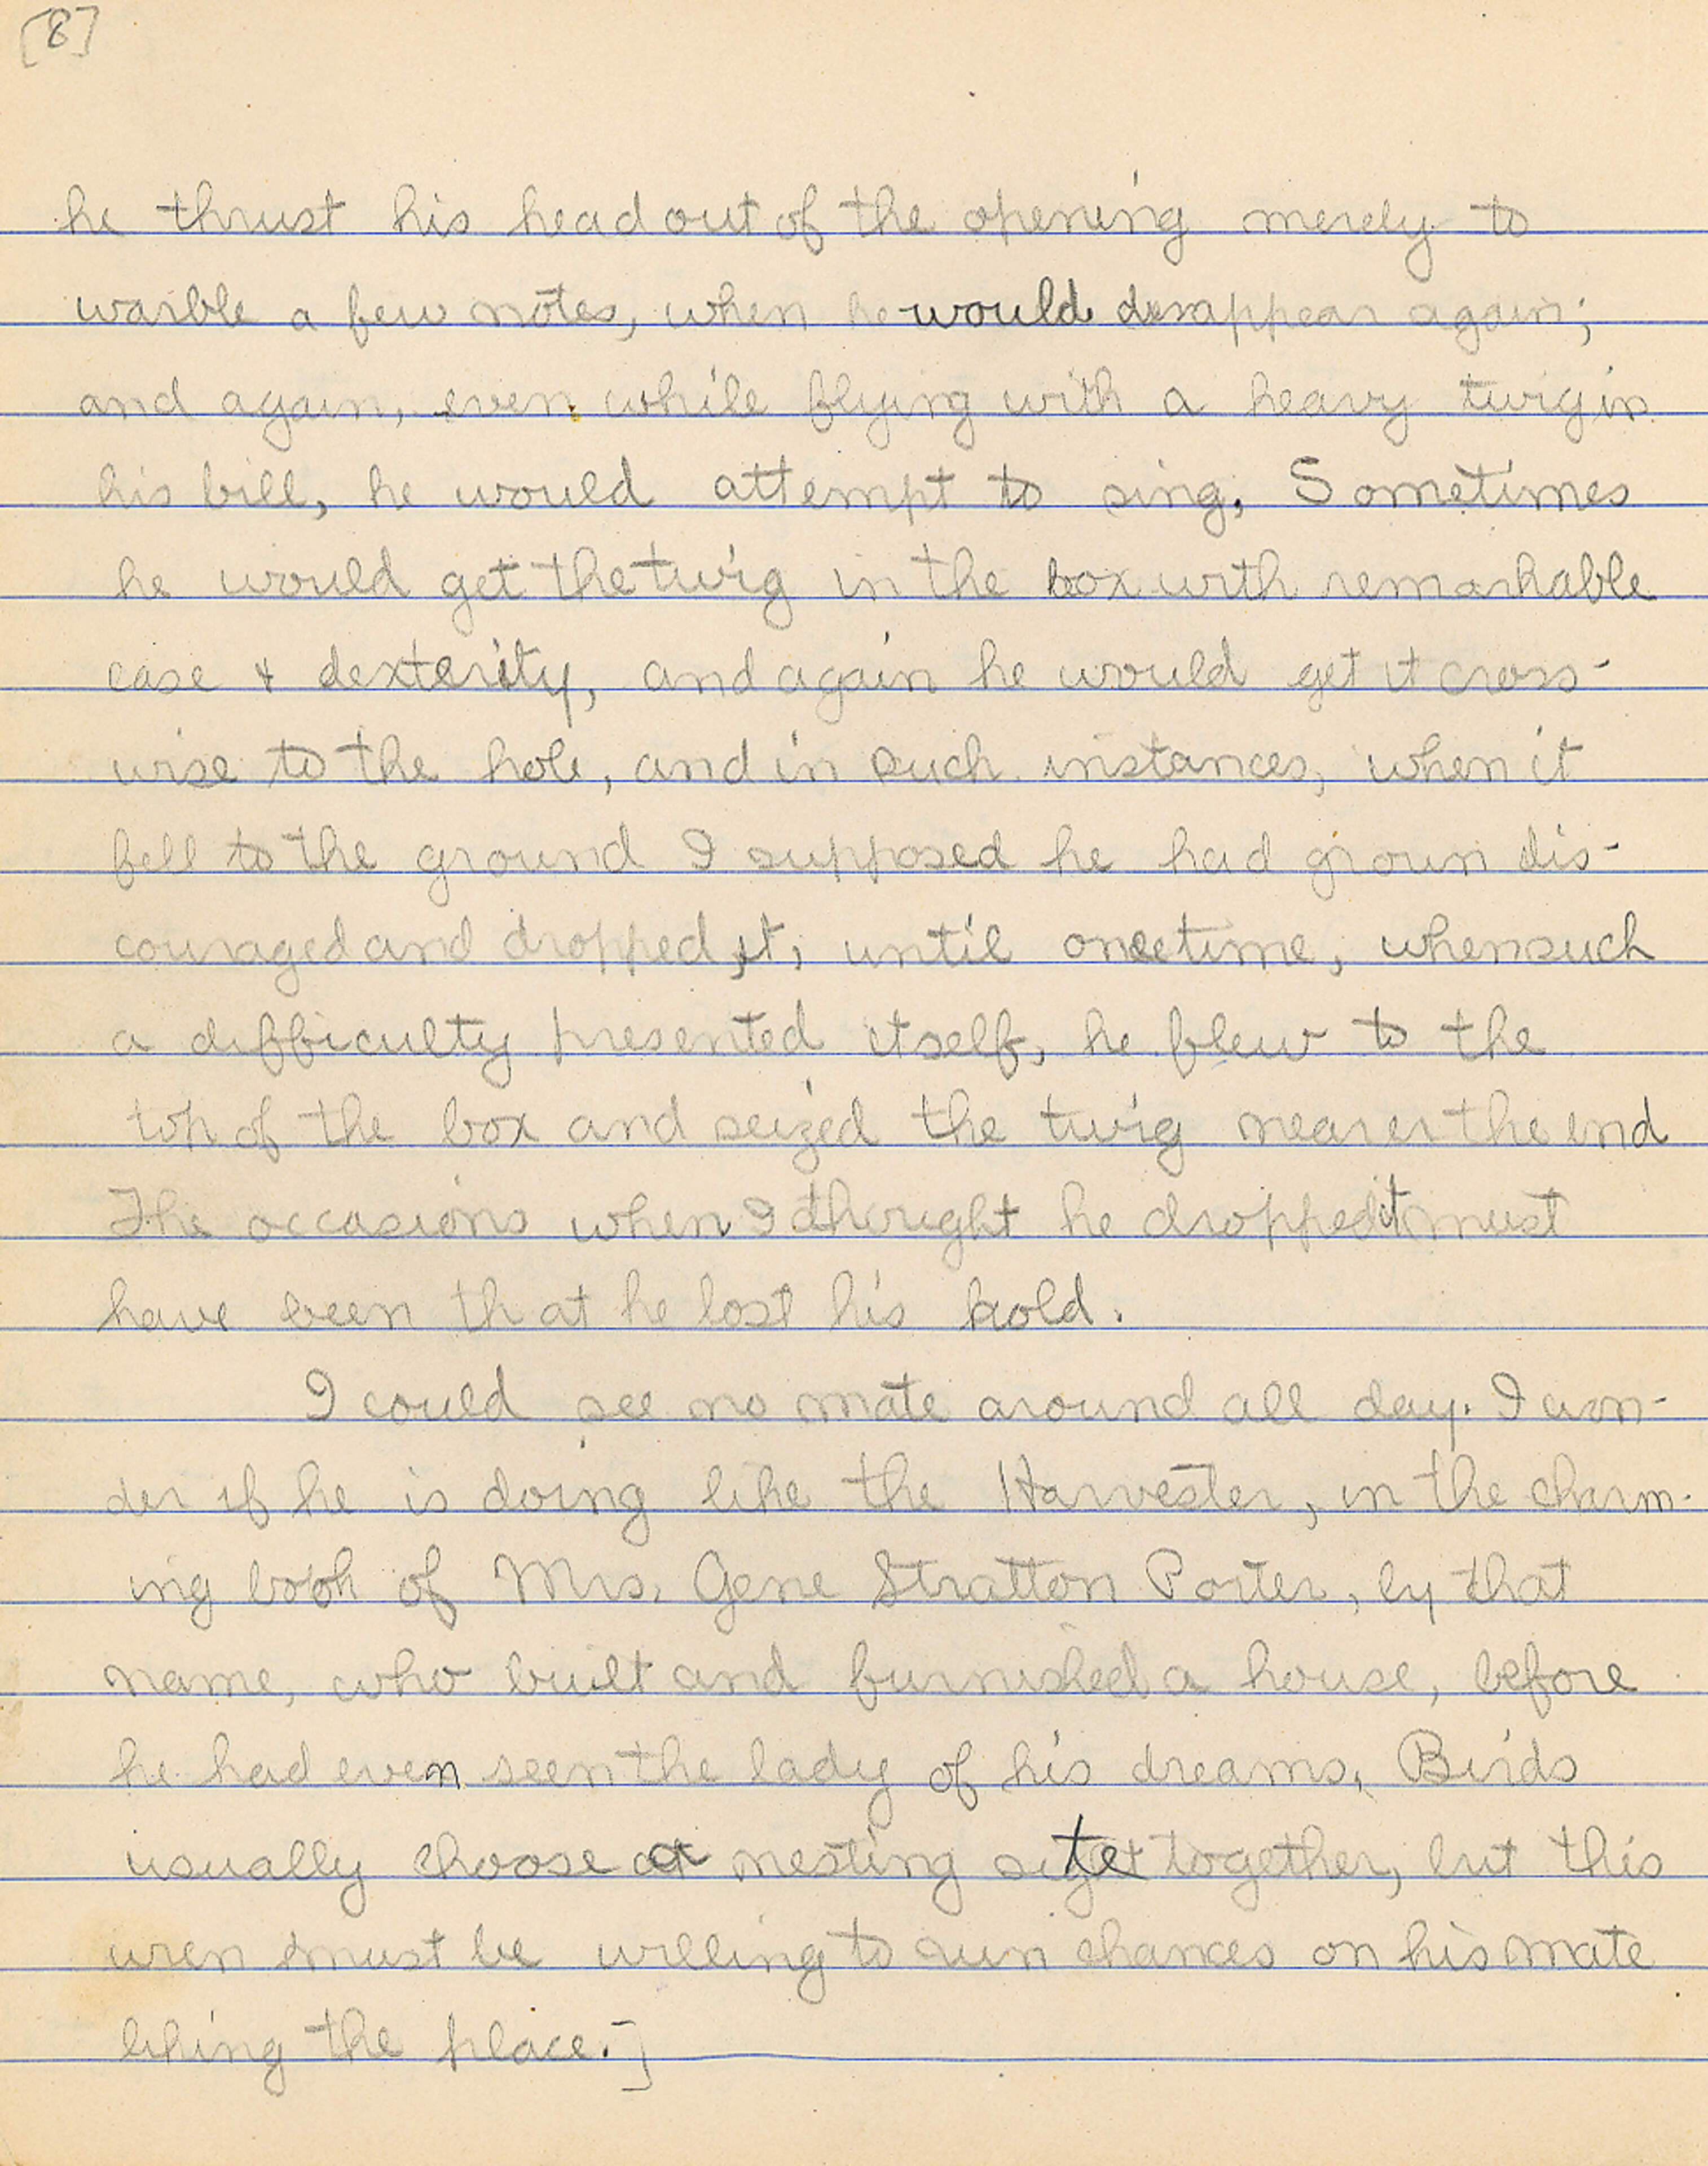 [8]
he thrust his head out of the opening merely to
warble a few notes, when he would disappear again;
and again, even while flying with a heavy twig in
his bill, he would attempt to sing. Sometimes
he would get the twig in the box with remarkable
ease & dexterity, and again he would get it cross-
wise to the hole, and in such instances, when it
fell to the ground I supposed he had grown dis-
couraged and dropped it; until one time, when such
a difficulty presented itself, he flew to the
top of the box and seized the twig nearer the end
The occasions when I thought he dropped it must
have been that he lost his hold.
I could see no mate around all day. I won-
der if he is doing like the Harvester, in the charm-
ing book of Mrs. Gene Stratton Porter, by that
name, who built and furnished a house, before
he had even seen the lady of his dreams. Birds
usually choose a nesting site together, but this
wren must be willing to run chances on his mate
liking the place.]